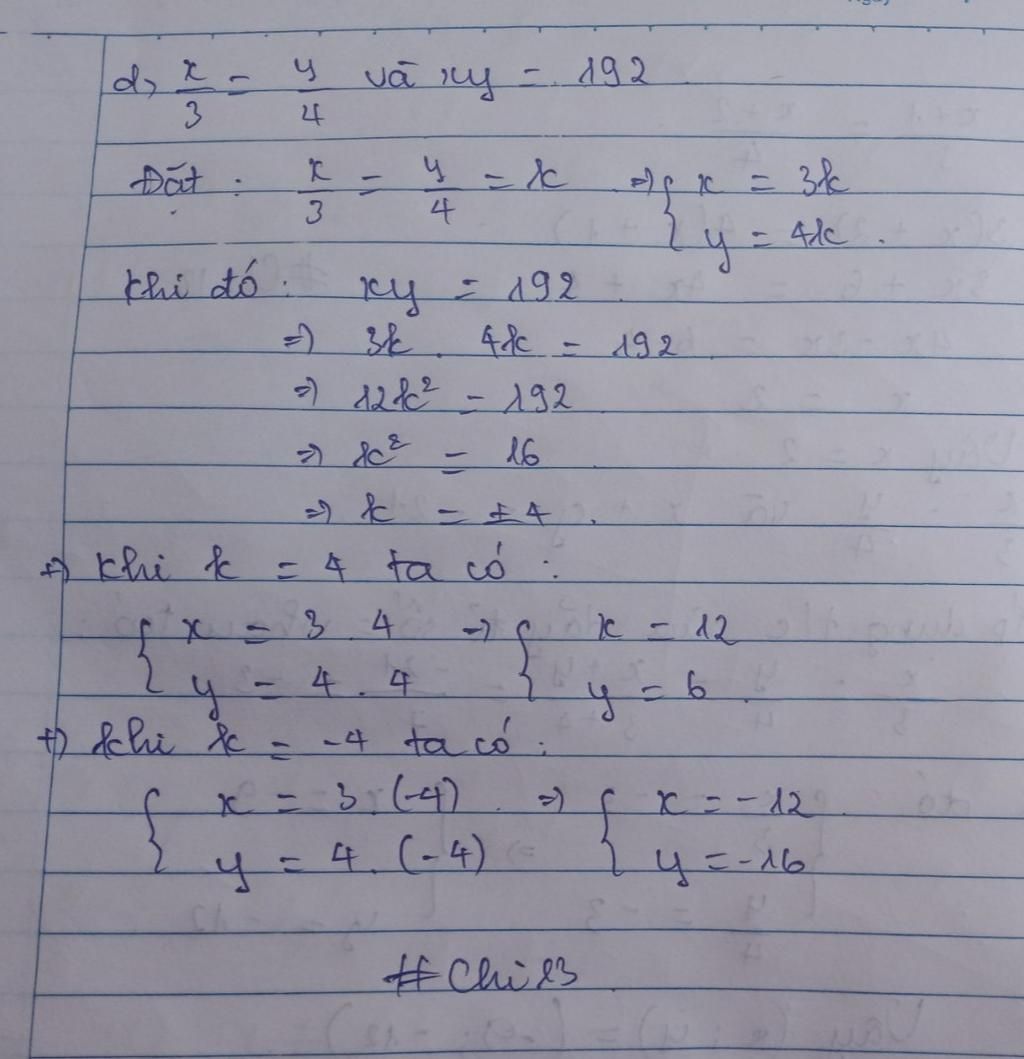 d, x/3 = y/4 và xy = 192
Đặt : x/3 = y/4 = k => { x = 3k
y = 4k .
Khi đó : xy = 192
=> 3k . 4k = 192
=> 12k² = 192
=> k² = 16
=> k = ±4 .
+) Khi k = 4 ta có :
{ x = 3 . 4 => { x = 12
y = 4 . 4 y = 6 .
+) Khi k = -4 ta có :
{ x = 3 . (-4) => { x = -12
y = 4 . (-4) y = -16
#Chi23